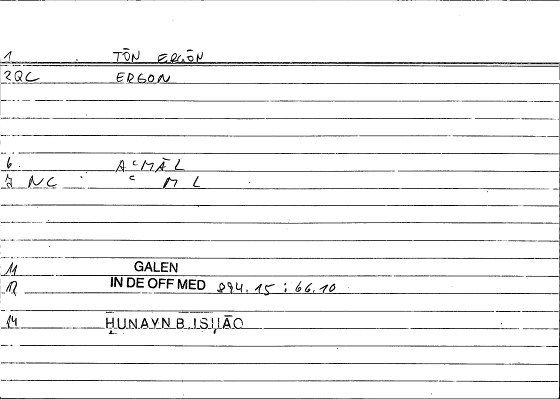 1 TŌN ERGŌN
2QC ERGON
6 AʿMĀL
7 NC ʿ M L
11 GALEN
12 IN DE OFF MED 894.15 : 66.10
14 ḤUNAYN B. ISḤĀQ